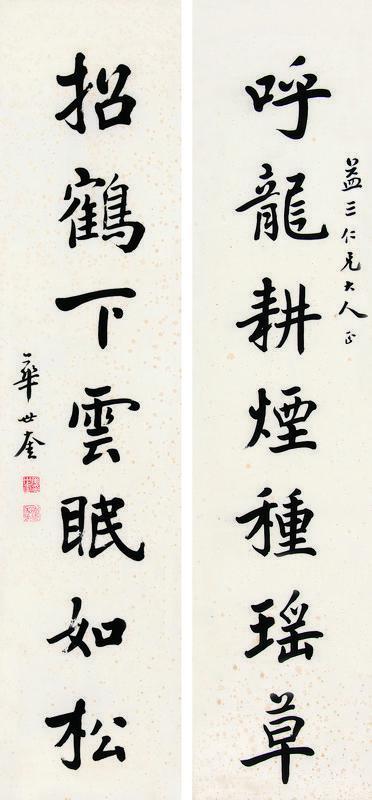 益三仁兄大人正
呼龍耕煙種瑶草
招鶴下雲眠如松
華世奎